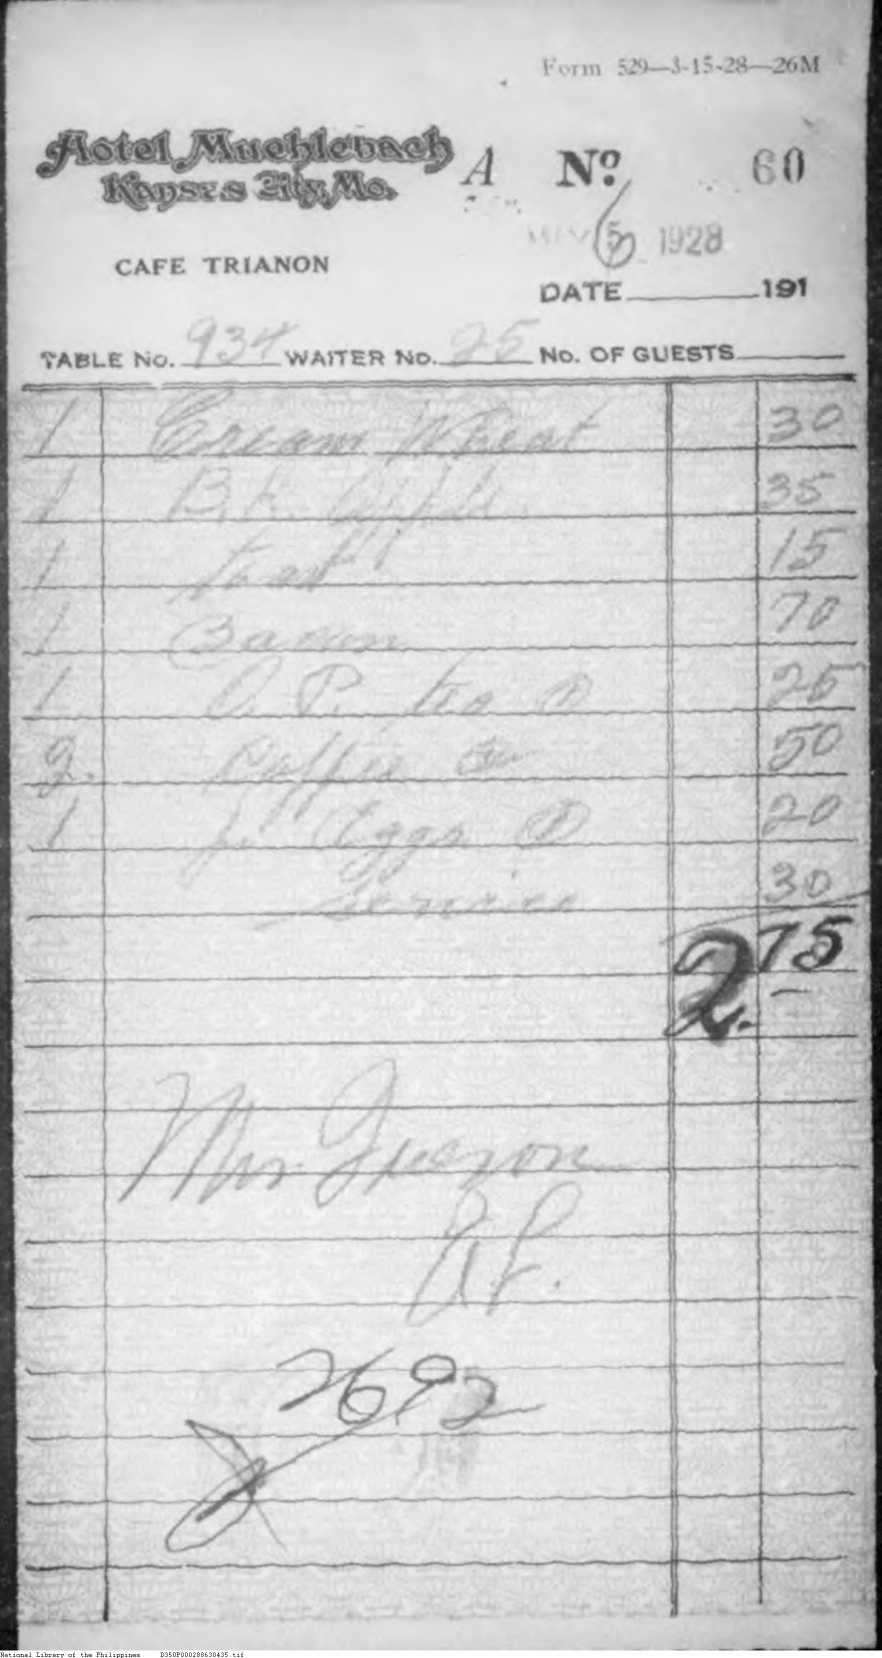 Form 529—3-15-28—26M
Hotel Muehlebach
Kansas City, Mo.
A No. 60
MAY 5 1928
CAFE TRIANON
DATE 191
TABLE No. 934 WAITER No. 25 No. OF GUESTS
1 Cream Wheat 30
1 35
1 toast 15
1 Bacon 70
1 O. P. tea 25
2. Coffee 50
1 Eggs 20
Service 30
2.75
Mr Quezon
2692
National Library of the Philippines D350P000288630435.tif